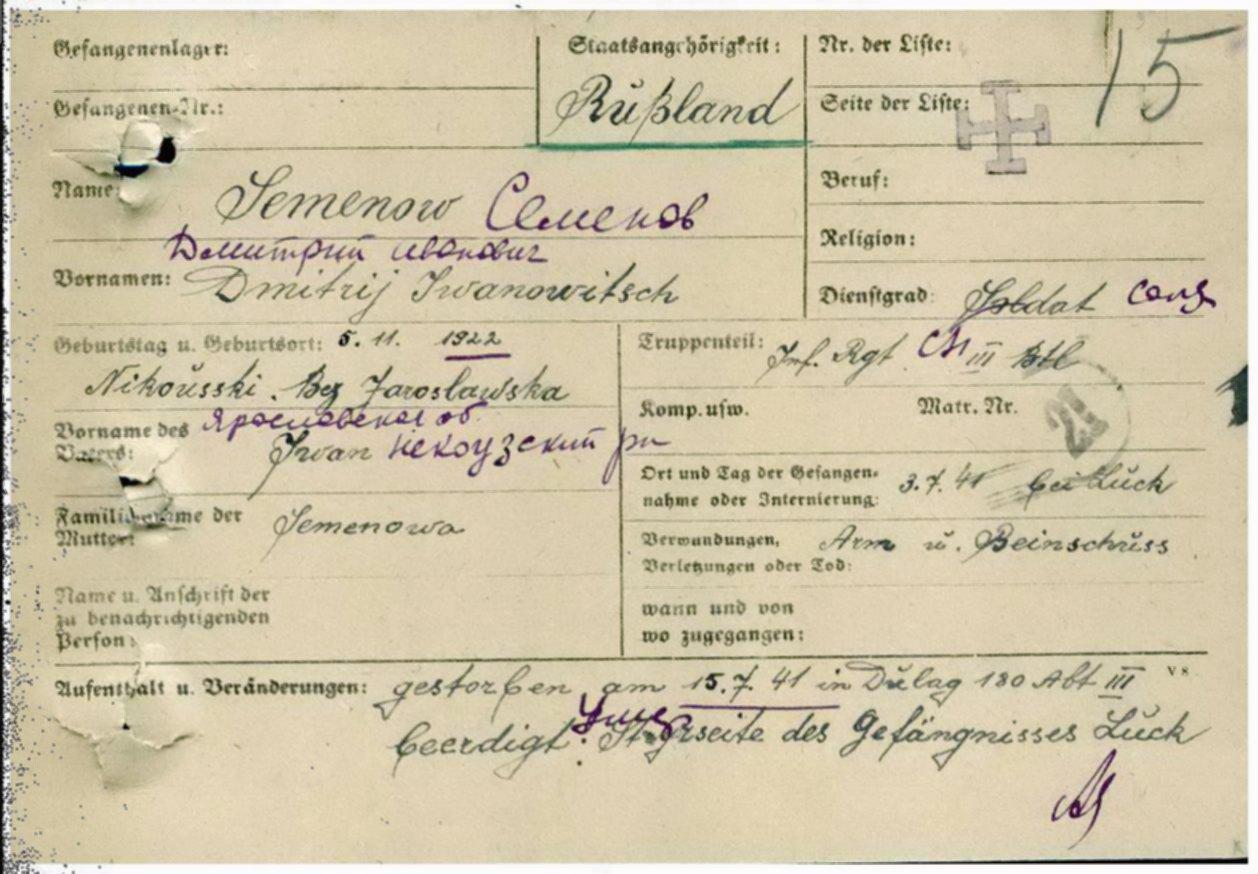 Gefangenenlager:
Staatsangehörigkeit:
Nr. der Liste:
15
Gefangenen-Nr.:
Rußland
Seite der Liste:
Name:
Semenow Семенов
Beruf:
Дмитрий Иванович
Religion:
Vornamen:
Dmitrij Iwanowitsch
Dienstgrad:
Soldat солд
Geburtstag u. Geburtsort: 5. 11. 1922
Truppenteil: Inf. Rgt СП III Btl
Nikousski Bez Jaroslawska
Ярославская об.
Komp. usw.
Matr. Nr.
21
Vorname des Vaters:
Iwan некоузский рн
Ort und Tag der Gefangen-
nahme oder Internierung: 3.7.41 bei Luck
Familienname der
Mutter:
Semenowa
Verwundungen, Arm u. Beinschuss
Verletzungen oder Tod:
Name u. Anschrift der
zu benachrichtigenden
Person:
wann und von
wo zugegangen:
Aufenthalt u. Veränderungen: gestorben am 15.7.41 in Dulag 180 Abt III
VS
Умер
beerdigt: des Gefängnisses Luck